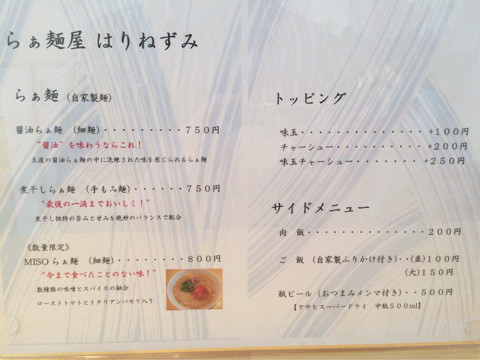 らぁ麺屋 はりねずみ
らぁ麺 (自家製麺)
醤油らぁ麺 (細麺)・・・・・・・・・750円
"醤油"を味わうならこれ!
王道の醤油らぁ麺の中に洗練された味を感じられるらぁ麺
煮干しらぁ麺 (手もみ麺)・・・・・・750円
"最後の一滴までおいしく!"
煮干し独特の苦みと甘みを絶妙のバランスで配合
《数量限定》
MISOらぁ麺 (細麺)・・・・・・・・800円
"今まで食べたことのない味!"
数種類の味噌とスパイスの融合
ローストトマトとイタリアンパセリ入り
トッピング
味玉・・・・・・・・・・・・・+100円
チャーシュー・・・・・・・・・+200円
味玉チャーシュー・・・・・・・+250円
サイドメニュー
肉 飯・・・・・・・・・・・・・200円
ご 飯 (自家製ふりかけ付き)・・(並)100円
(大)150円
瓶ビール (おつまみメンマ付き)・・500円
【アサヒスーパードライ 中瓶500ml】